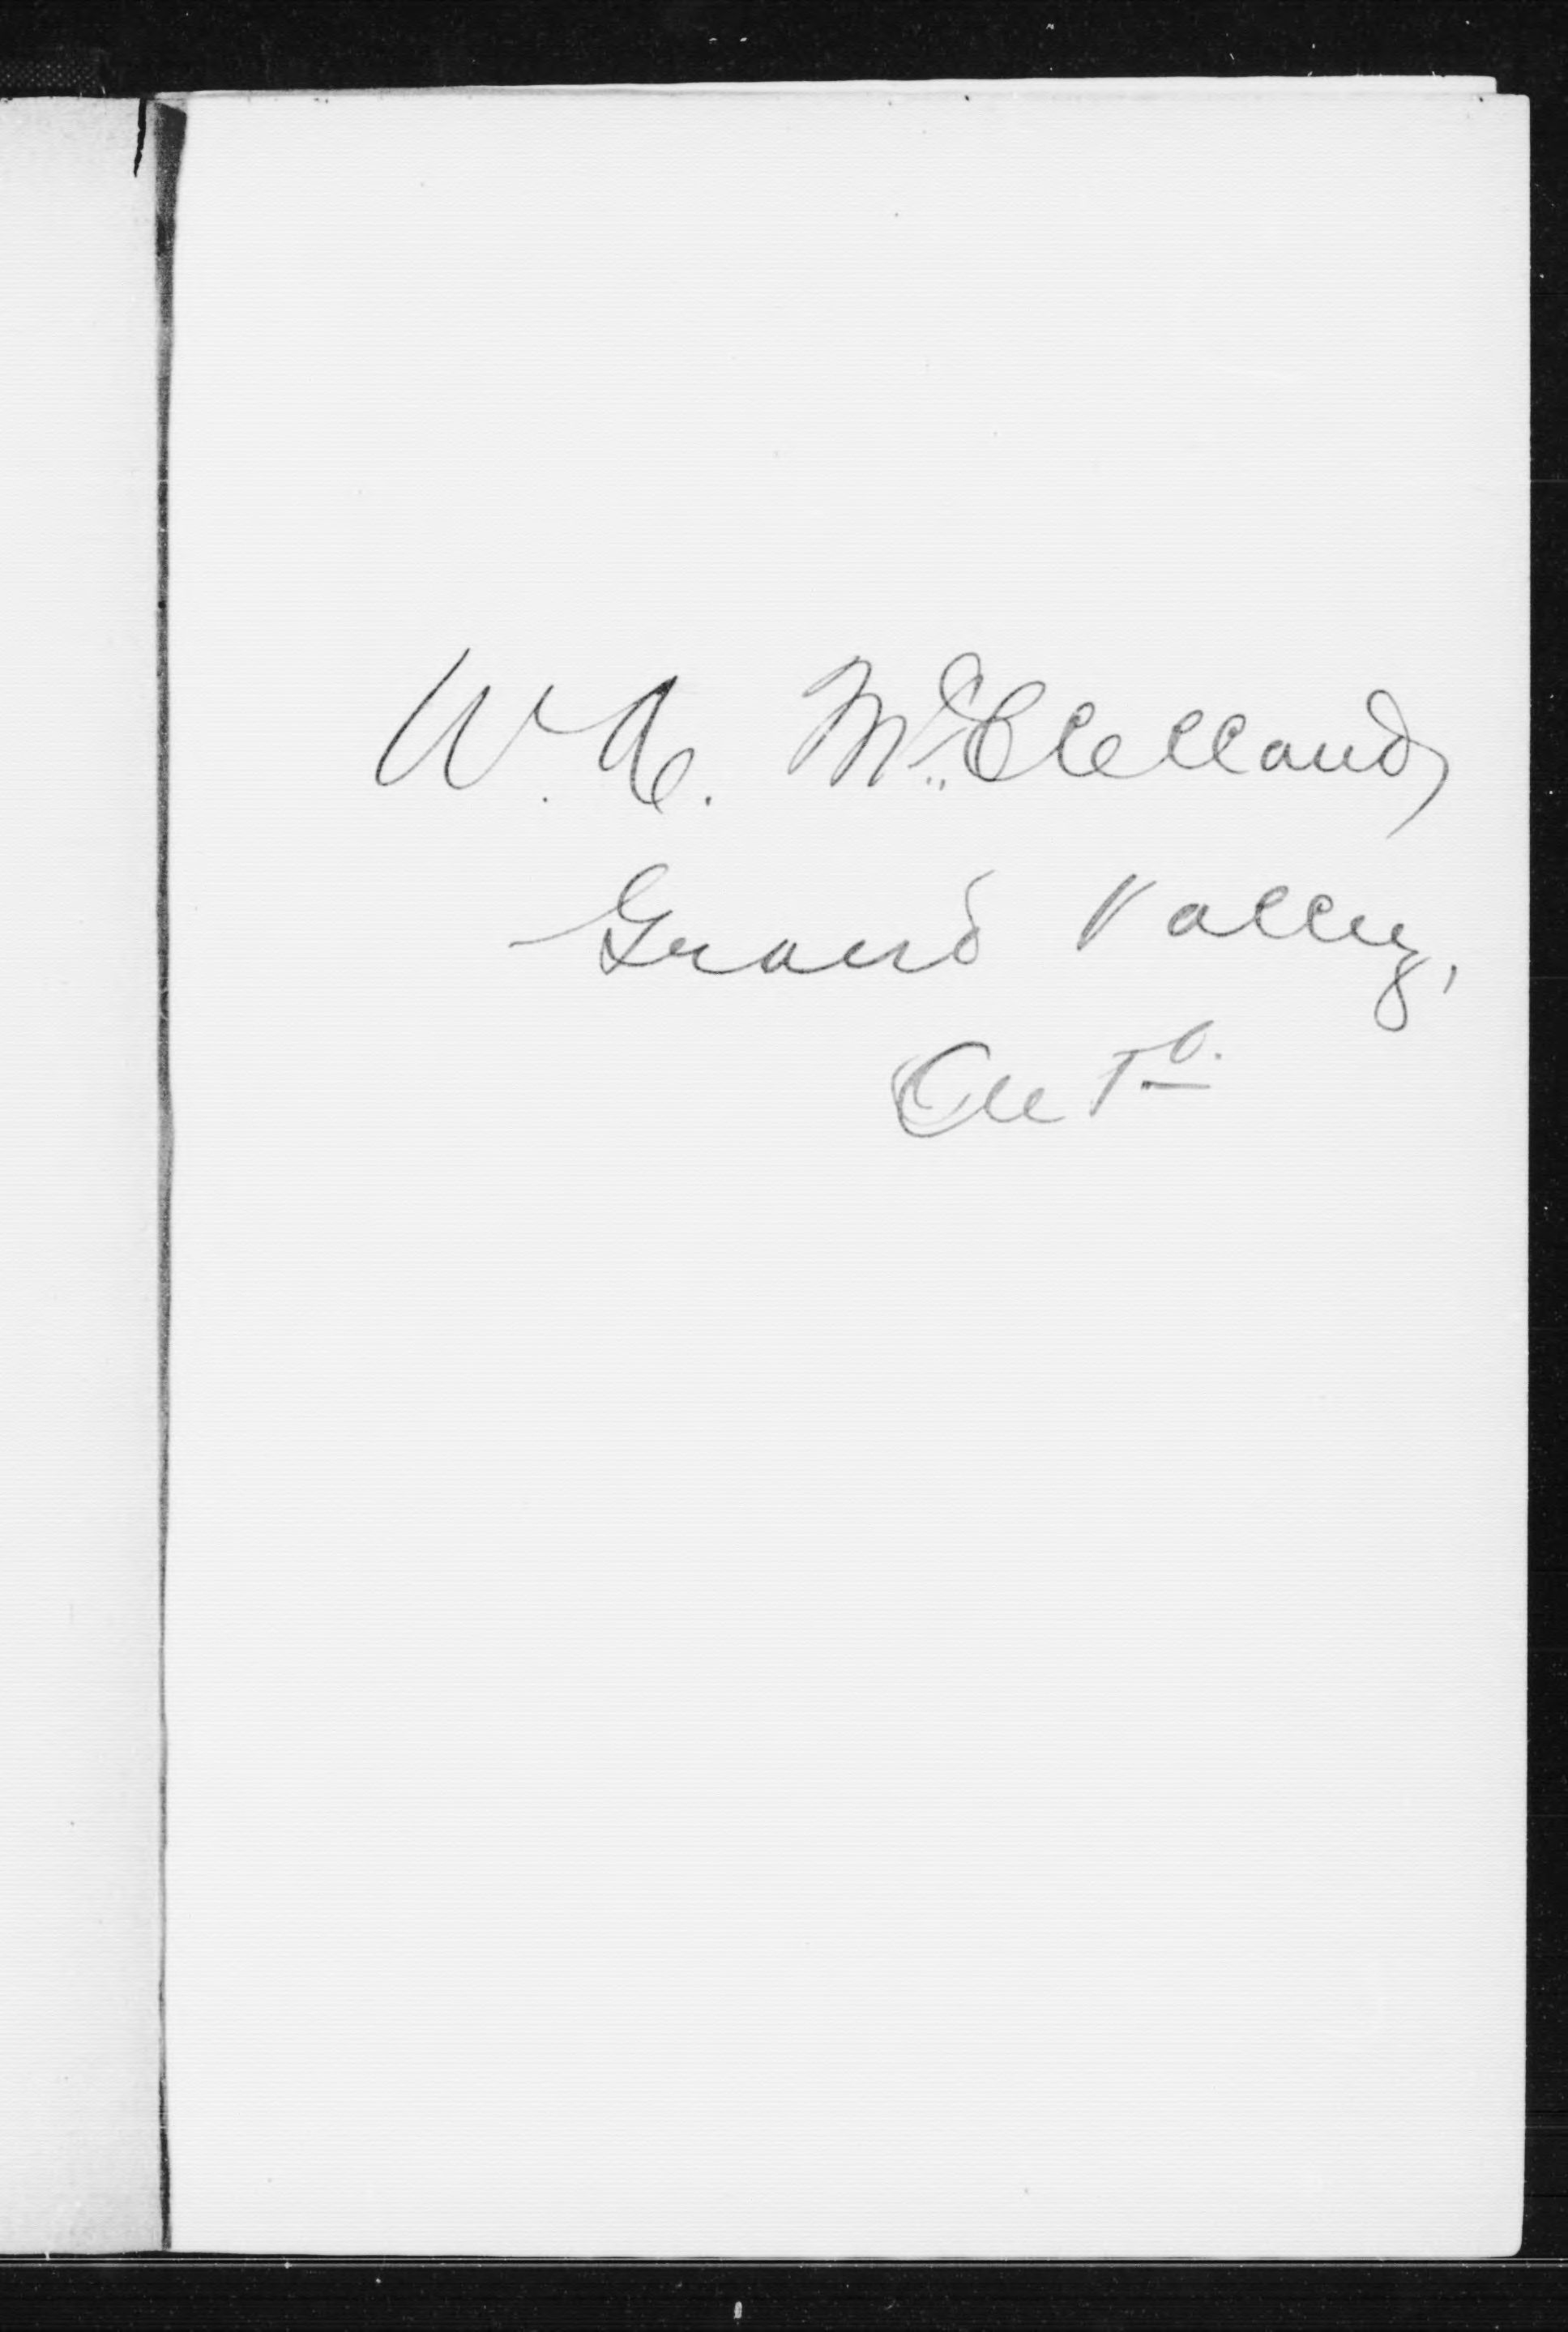 W. A. McClelland,
Grand Valley,
Onto.